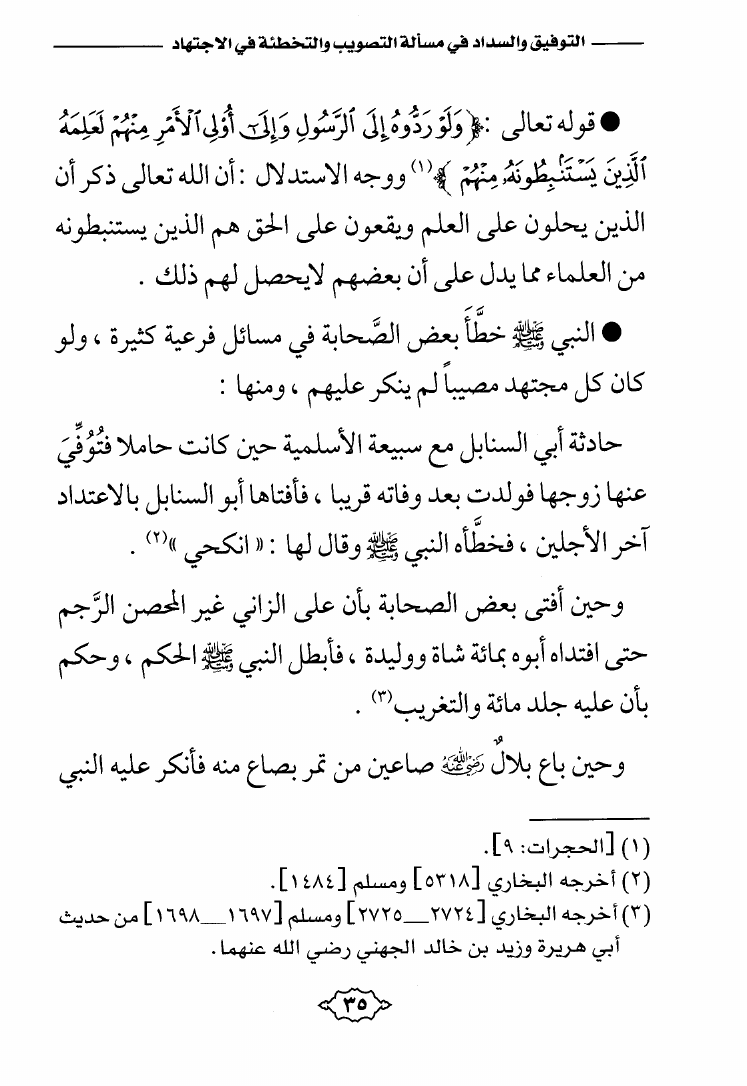 التوفيق والسداد في مسألة التصويب والتخطئة في الاجتهاد
● قوله تعالى : ﴿ وَلَوْ رَدُّوهُ إِلَى ٱلرَّسُولِ وَإِلَىٰٓ أُو۟لِى ٱلْأَمْرِ مِنْهُمْ لَعَلِمَهُ
ٱلَّذِينَ يَسْتَنۢبِطُونَهُۥ مِنْهُمْ ﴾(١) ووجه الاستدلال : أن الله تعالى ذكر أن
الذين يحلون على العلم ويقعون على الحق هم الذين يستنبطونه
من العلماء مما يدل على أن بعضهم لايحصل لهم ذلك .
● النبي ﷺ خطَّأَ بعض الصَّحابة في مسائل فرعية كثيرة ، ولو
كان كل مجتهد مصيباً لم ينكر عليهم ، ومنها :
حادثة أبي السنابل مع سبيعة الأسلمية حين كانت حاملا فتُوُفِّيَ
عنها زوجها فولدت بعد وفاته قريبا ، فأفتاها أبو السنابل بالاعتداد
آخر الأجلين ، فخطَّأه النبي ﷺ وقال لها : « انكحي »(٢) .
وحين أفتى بعض الصحابة بأن على الزاني غير المحصن الرَّجم
حتى افتداه أبوه بمائة شاة ووليدة ، فأبطل النبي ﷺ الحكم ، وحكم
بأن عليه جلد مائة والتغريب(٣) .
وحين باع بلالٌ رضي الله عنه صاعين من تمر بصاع منه فأنكر عليه النبي
(١) [الحجرات: ٩].
(٢) أخرجه البخاري [٥٣١٨] ومسلم [١٤٨٤].
(٣) أخرجه البخاري [٢٧٢٤__٢٧٢٥] ومسلم [١٦٩٧__١٦٩٨] من حديث
أبي هريرة وزيد بن خالد الجهني رضي الله عنهما.
٣٥